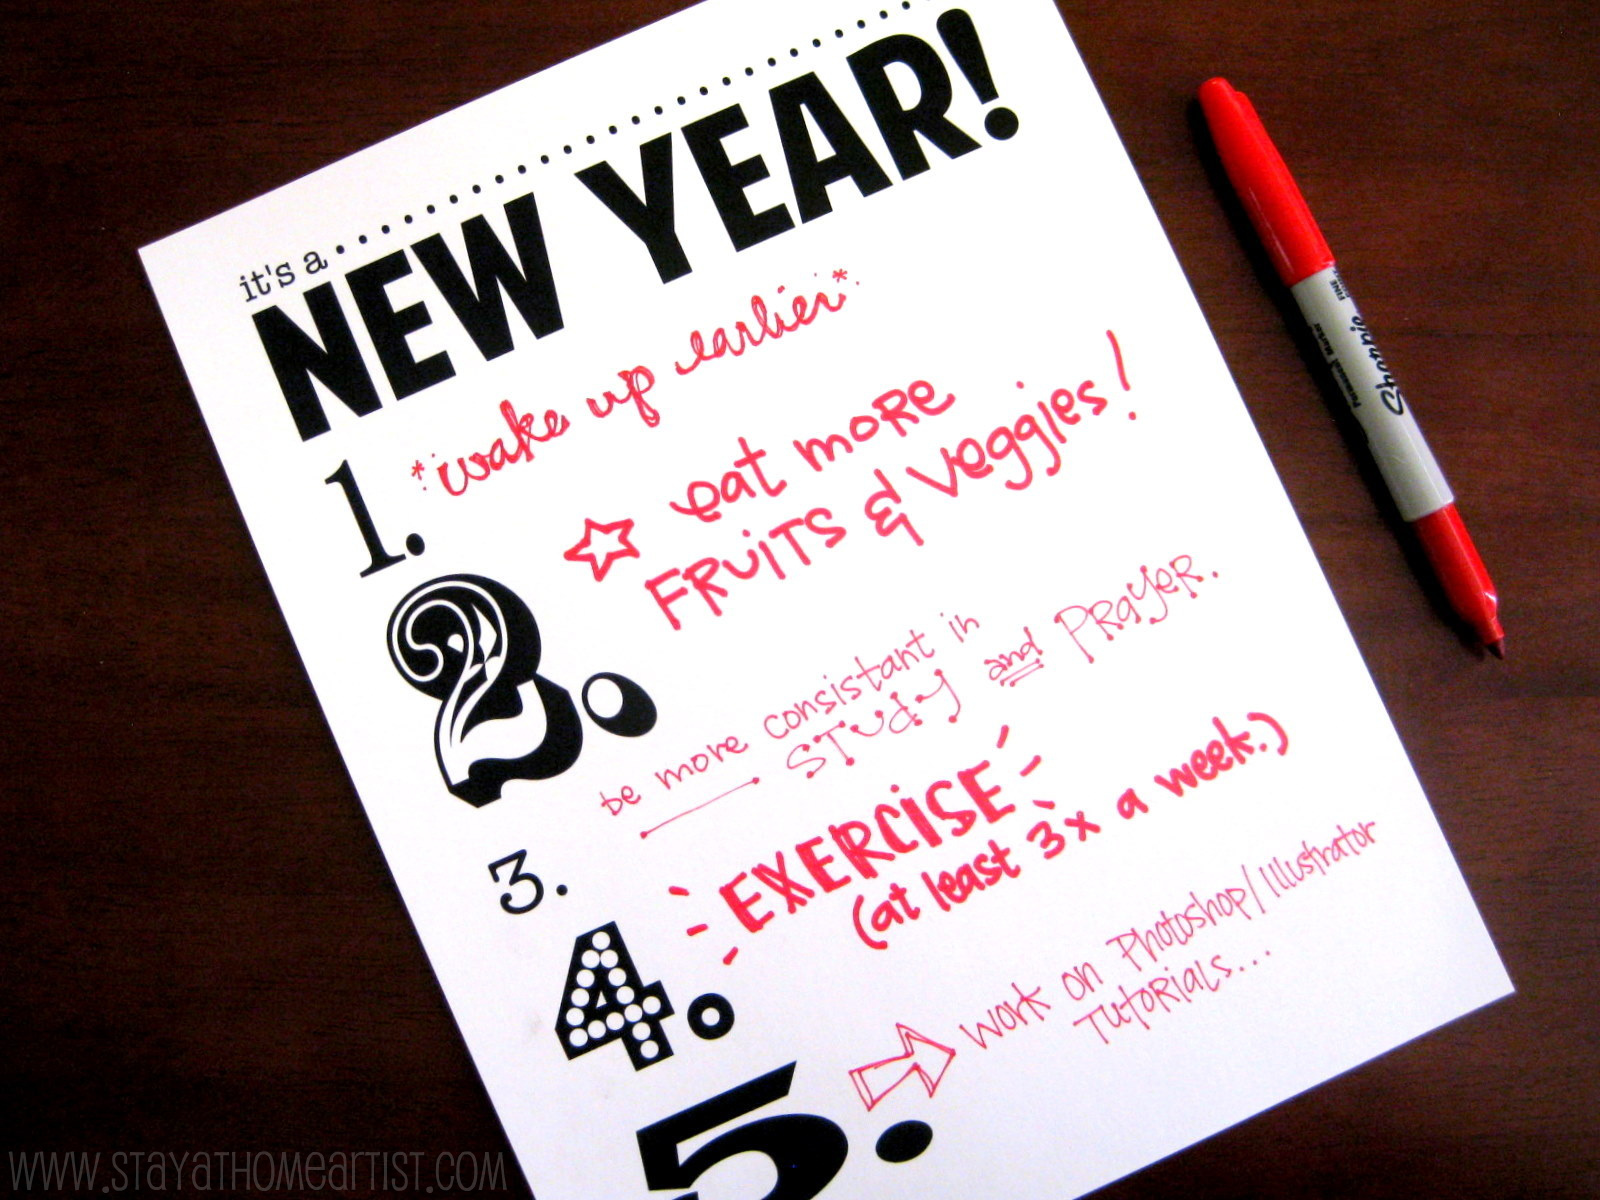 it's a
NEW YEAR!
1. *wake up earlier*
2. eat more
FRUiTS & veggies!
3. be more consistant in
STUdY and PRayER.
4. EXERCiSE
(at least 3x a week.)
5. work on Photoshop/Illustrator
TUTORIALS...
Sharpie
FINE
Permanent Marker
WWW.STAYATHOMEARTIST.COM